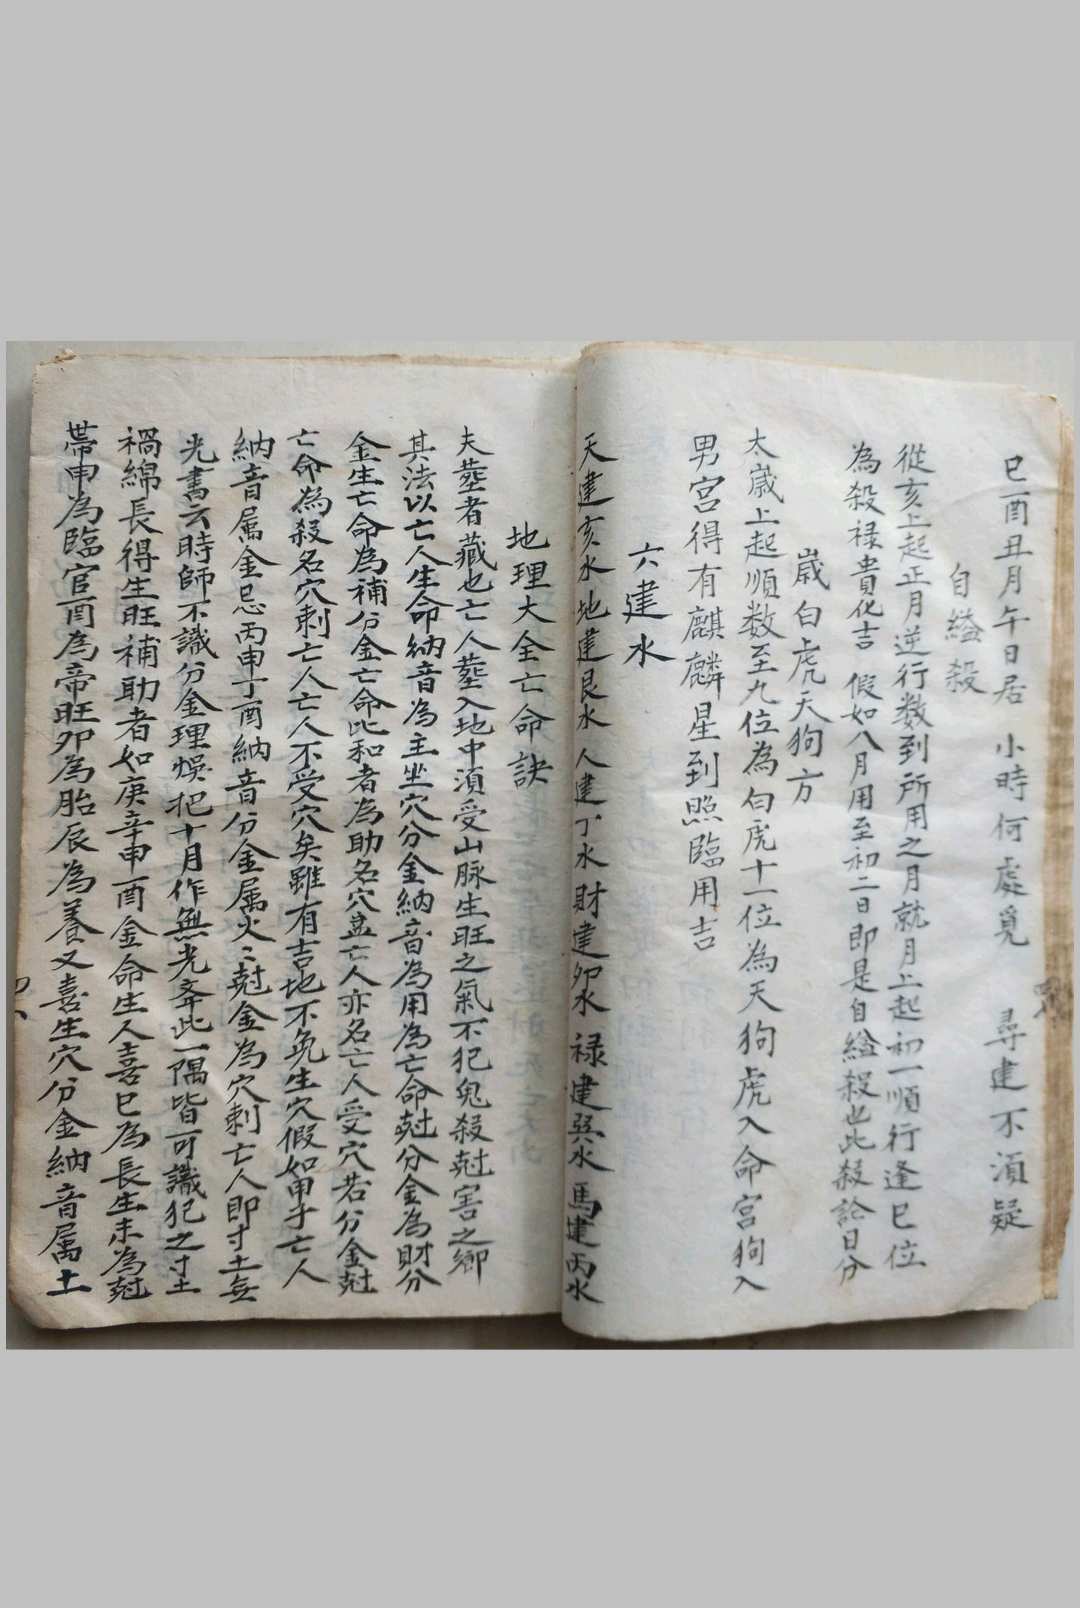 巳酉丑月午日居　小時何處覓　尋建不湏疑
自縊殺
從亥上起正月逆行数到所用之月就月上起初一順行逢巳位
為殺禄貴化吉　假如八月用至初二日即是自縊殺也此殺論日分
歳白虎天狗方
太歳上起順数至九位為白虎十一位為天狗虎入命宮狗入
男宮得有麒麟星到照臨用吉
六建水
天建亥水地建艮水人建丁水財建卯水禄建巽水馬建丙水
地理大全亡命訣
夫塟者藏也亡人塟入地中湏受山脉生旺之氣不犯鬼殺尅害之鄉
其法以亡人生命納音為主坐穴分金納音為用為亡命尅分金為財分
金生亡命為補分金亡命比和者為助名穴益亡人亦名亡人受穴若分金尅
亡命為殺名穴剌亡人亡人不受穴矣雖有吉地不免生穴假如甲子亡人
納音属金忌丙申丁酉納音分金属火〻尅金為穴剌亡人即寸土無
光書云時師不識分金理悞犯十月作無光舉此一隅皆可識犯之寸土
禍綿長得生旺補助者如庚辛申酉金命生人喜巳為長生未為尅
帶申為臨官酉為帝旺卯為胎辰為養又喜生穴分金納音属土